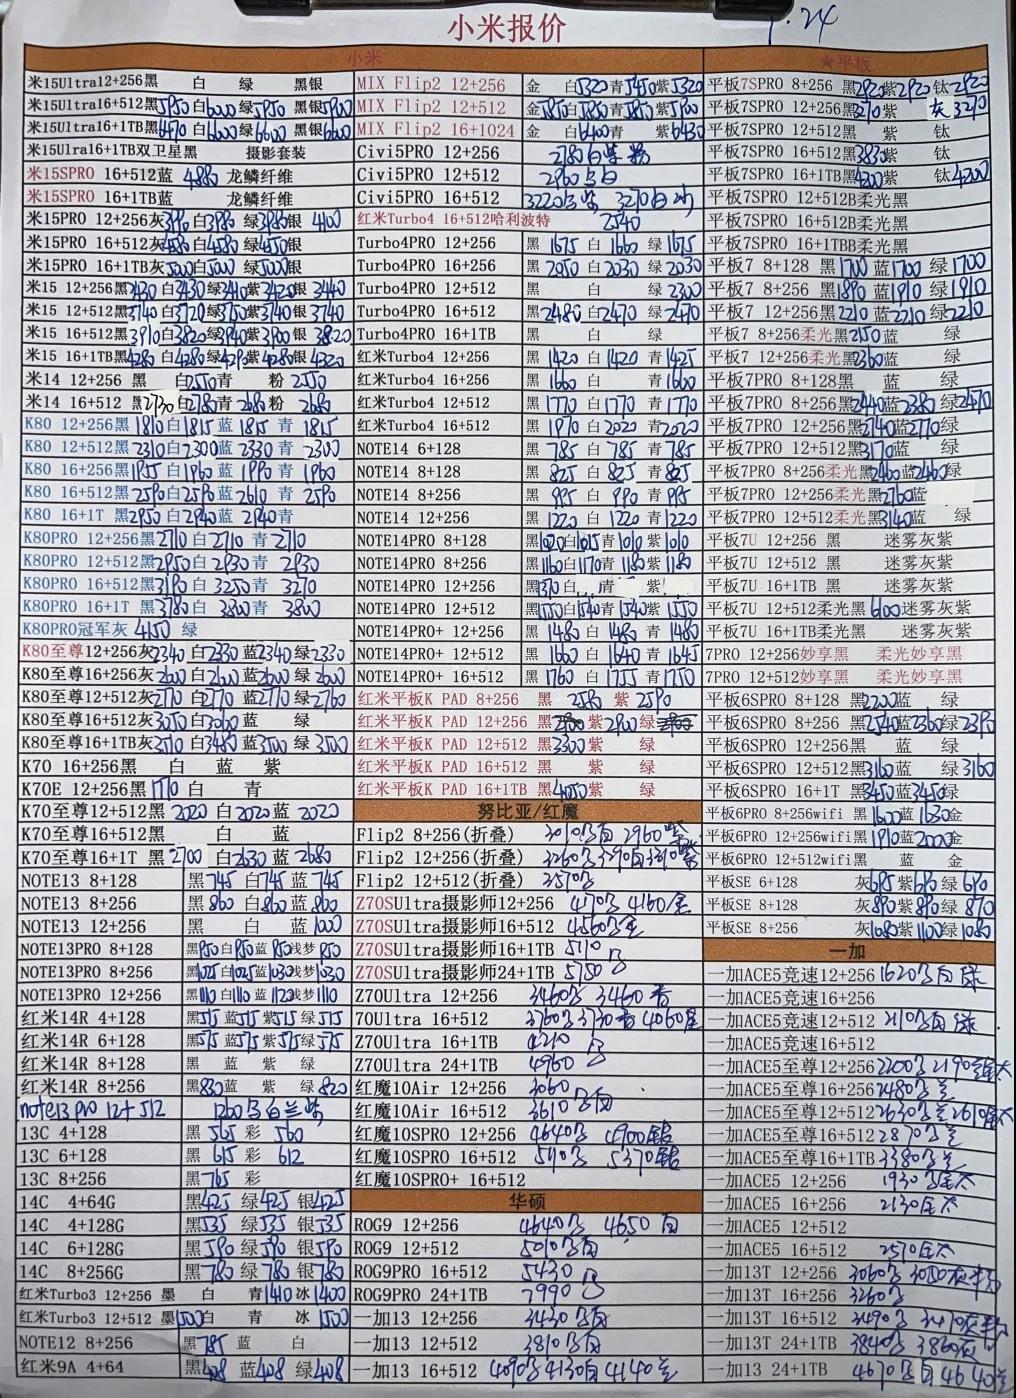 小米报价
7.24
小米
米15Ultra12+256黑 白 绿 黑银
米15Ultra16+512黑5950白6000绿5950黑银5900
米15Ultra16+1TB黑6470白6600绿6600黑银6600
米15Ulra16+1TB双卫星黑 摄影套装
米15SPRO 16+512蓝 4880 龙鳞纤维
米15SPRO 16+1TB蓝 龙鳞纤维
米15PRO 12+256灰3990白3980绿3980银 4100
米15PRO 16+512灰4580白4580绿4550银
米15PRO 16+1TB灰5000白5000绿5000银
米15 12+256黑3430白3430绿3410紫3420银3440
米15 12+512黑3740白3720绿3750紫3740银3740
米15 16+512黑3910白3820绿3940紫3900银3820
米15 16+1TB黑4280白4280绿4290紫4280银4320
米14 12+256 黑 白2550青 粉2550
米14 16+512 黑2730白2780青2680粉2680
K80 12+256黑1810白1815蓝1815青1815
K80 12+512黑2310白2300蓝2330青2300
K80 16+256黑1955白1960蓝1990青1960
K80 16+512黑2590白2590蓝2610青2590
K80 16+1T 黑2950白2940蓝2940青
K80PRO 12+256黑2710白2710青2710
K80PRO 12+512黑2950白2930青2930
K80PRO 16+512黑3190白3250青3270
K80PRO 16+1T 黑3780白3800青3800
K80PRO冠军灰 4150 绿
K80至尊12+256灰2340白2330蓝2340绿2330
K80至尊16+256灰2600白2600蓝2600绿2600
K80至尊12+512灰2770白2770蓝2770绿2760
K80至尊16+512灰3050白3060蓝 绿
K80至尊16+1TB灰3510白3480蓝3500绿3500
K70 16+256黑 白 蓝 紫
K70E 12+256黑1770白 青
K70至尊12+512黑2020白2020蓝2020
K70至尊16+512黑 白 蓝
K70至尊16+1T 黑2700白2630蓝2680
NOTE13 8+128 黑745白745蓝745
NOTE13 8+256 黑860白860蓝860
NOTE13 12+256 黑 白 蓝1000
NOTE13PRO 8+128 黑950白950蓝950浅梦950
NOTE13PRO 8+256 黑1025白1025蓝1030浅梦1030
NOTE13PRO 12+256 黑1110白1110蓝1120浅梦1110
红米14R 4+128 黑515蓝515紫515绿515
红米14R 6+128 黑575蓝575紫575绿575
红米14R 8+128 黑 蓝 紫 绿
红米14R 8+256 黑830蓝 紫 绿820
note13 pro 12+512 1260 白兰紫
13C 4+128 黑565彩560
13C 6+128 黑615彩612
13C 8+256 黑765彩
14C 4+64G 黑425绿425银425
14C 4+128G 黑535绿535银535
14C 6+128G 黑590绿590银590
14C 8+256G 黑780绿780银780
红米Turbo3 12+256 墨 白 青1410冰1400
红米Turbo3 12+512 墨1500白 青 冰1500
NOTE12 8+256 黑785蓝 白
红米9A 4+64 黑408蓝408绿408
MIX Flip2 12+256 金 白5320青5450紫5320
MIX Flip2 12+512 金5850白5850青5850紫5900
MIX Flip2 16+1024 金 白6400青 紫6430
Civi5PRO 12+256 2780白紫粉
Civi5PRO 12+512 2960 白
Civi5PRO 16+512 3220 紫 3270白
红米Turbo4 16+512哈利波特 2540
Turbo4PRO 12+256 黑1675白1660绿1675
Turbo4PRO 16+256 黑2050白2030绿2030
Turbo4PRO 12+512 黑 白 绿2300
Turbo4PRO 16+512 黑2480白2470绿2470
Turbo4PRO 16+1TB 黑 白 绿
红米Turbo4 12+256 黑1420白1420青1425
红米Turbo4 16+256 黑1660白 青1660
红米Turbo4 12+512 黑1770白1770青1770
红米Turbo4 16+512 黑1970白2020青2020
NOTE14 6+128 黑785白785青785
NOTE14 8+128 黑825白825青825
NOTE14 8+256 黑995白990青995
NOTE14 12+256 黑1220白1220青1220
NOTE14PRO 8+128 黑1020白1015青1010紫1010
NOTE14PRO 8+256 黑1160白1170青1180紫1180
NOTE14PRO 12+256 黑1370白 青 紫
NOTE14PRO 12+512 黑1550白1540青1540紫1550
NOTE14PRO+ 12+256 黑1480白1480青1480
NOTE14PRO+ 12+512 黑1660白1640青1645
NOTE14PRO+ 16+512 黑1760白1755青1750
红米平板K PAD 8+256 黑 2580 紫 2590
红米平板K PAD 12+256 黑 紫2900绿
红米平板K PAD 12+512 黑3300紫 绿
红米平板K PAD 16+512 黑 紫 绿
红米平板K PAD 16+1TB 黑4050紫 绿
努比亚/红魔
Flip2 8+256(折叠) 3010 2960紫
Flip2 12+256(折叠) 3260
Flip2 12+512(折叠) 3570
Z70SUltra摄影师12+256 4170 4160金
Z70SUltra摄影师16+512 4560 金
Z70SUltra摄影师16+1TB 5110
Z70SUltra摄影师24+1TB 5750
Z70Ultra 12+256 3460 3460青
70Ultra 16+512 3760 3730青 4060星
Z70Ultra 16+1TB 4210
Z70Ultra 24+1TB 4960
红魔10Air 12+256 3060
红魔10Air 16+512 3610 白
红魔10SPRO 12+256 4640 4900
红魔10SPRO 16+512 5370
红魔10SPRO+ 16+512
华硕
ROG9 12+256 4640 4650白
ROG9 12+512 5010 白
ROG9PRO 16+512 5430
ROG9PRO 24+1TB 7990
一加13 12+256 3430 白
一加13 12+512 3810 白
一加13 16+512 4090 4130白4140兰
★平板
平板7SPRO 8+256 黑2920紫2920钛2920
平板7SPRO 12+256黑3270紫 灰3270
平板7SPRO 12+512黑 紫 钛
平板7SPRO 16+512黑3830紫 钛
平板7SPRO 16+1TB黑4200紫 钛4200
平板7SPRO 12+512B柔光黑
平板7SPRO 16+512B柔光黑
平板7SPRO 16+1TBB柔光黑
平板7 8+128 黑1700蓝1700绿1700
平板7 8+256 黑1890蓝1910绿1910
平板7 12+256 黑2210蓝2210绿2210
平板7 8+256柔光黑2150蓝 绿
平板7 12+256柔光黑2360蓝 绿
平板7PRO 8+128黑 蓝 绿
平板7PRO 8+256黑2440蓝2380绿2470
平板7PRO 12+256黑2740蓝2770绿
平板7PRO 12+512黑3170蓝 绿
平板7PRO 8+256柔光黑2460蓝2460绿
平板7PRO 12+256柔光黑2760蓝
平板7PRO 12+512柔光黑3140蓝 绿
平板7U 12+256 黑 迷雾灰紫
平板7U 12+512 黑 迷雾灰紫
平板7U 16+1TB 黑 迷雾灰紫
平板7U 12+512柔光黑6100迷雾灰紫
平板7U 16+1TB柔光黑 迷雾灰紫
7PRO 12+256妙享黑 柔光妙享黑
7PRO 12+512妙享黑 柔光妙享黑
平板6SPRO 8+128 黑2200蓝 绿
平板6SPRO 8+256 黑2540蓝2360绿2390
平板6SPRO 12+256黑 蓝 绿
平板6SPRO 12+512黑3160蓝 绿3160
平板6SPRO 16+1TB 黑3450蓝3450绿
平板6PRO 8+256wifi 黑1600蓝1630金
平板6PRO 12+256wifi黑1910蓝2000金
平板6PRO 12+512wifi黑 蓝 金
平板SE 6+128 灰695紫690绿690
平板SE 8+128 灰890紫890绿870
平板SE 8+256 灰1080紫1100绿1080
一加
一加ACE5竞速12+256 1620 白绿
一加ACE5竞速16+256
一加ACE5竞速12+512 2110 白绿
一加ACE5竞速16+512
一加ACE5至尊12+256 2200 2190
一加ACE5至尊16+256 2480
一加ACE5至尊12+512 2630 2610
一加ACE5至尊16+512 2870
一加ACE5至尊16+1TB 3380
一加ACE5 12+256 1930
一加ACE5 16+256 2130
一加ACE5 12+512
一加ACE5 16+512 2570
一加13T 12+256 3060
一加13T 16+256 3260
一加13T 16+512 3490 3470
一加13T 24+1TB 3840 3860灰
一加13 24+1TB 4670 白4640兰